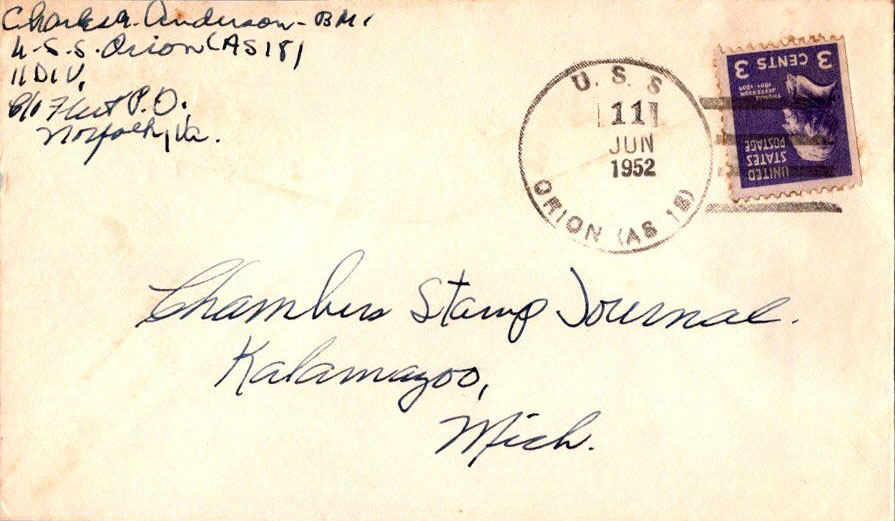 Charles A. Anderson - BM1
U.S.S. Orion (AS 18)
11 DIV.
c/o Fleet P.O.
Norfolk, Va.
U. S. S
11
JUN
1952
ORION (AS 18)
3 CENTS 3
THOMAS JEFFERSON
1801-1809
UNITED
STATES
POSTAGE
Chambers Stamp Journal.
Kalamazoo,
Mich.